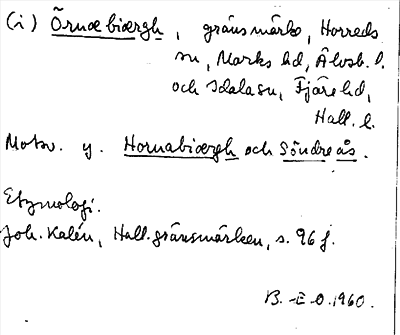 (i) Õrnæbiærgh, gränsmärke, Horreds
sn, Marks hd, Älvsb. l.
och Idala sn, Fjäre hd,
Hall. l.
Motsv. y. Hornabiærgh och Söndreås.
Etymologi.
Joh. Kalén, Hall. gränsmärken, s. 96 f.
B.-E.O. 1960.